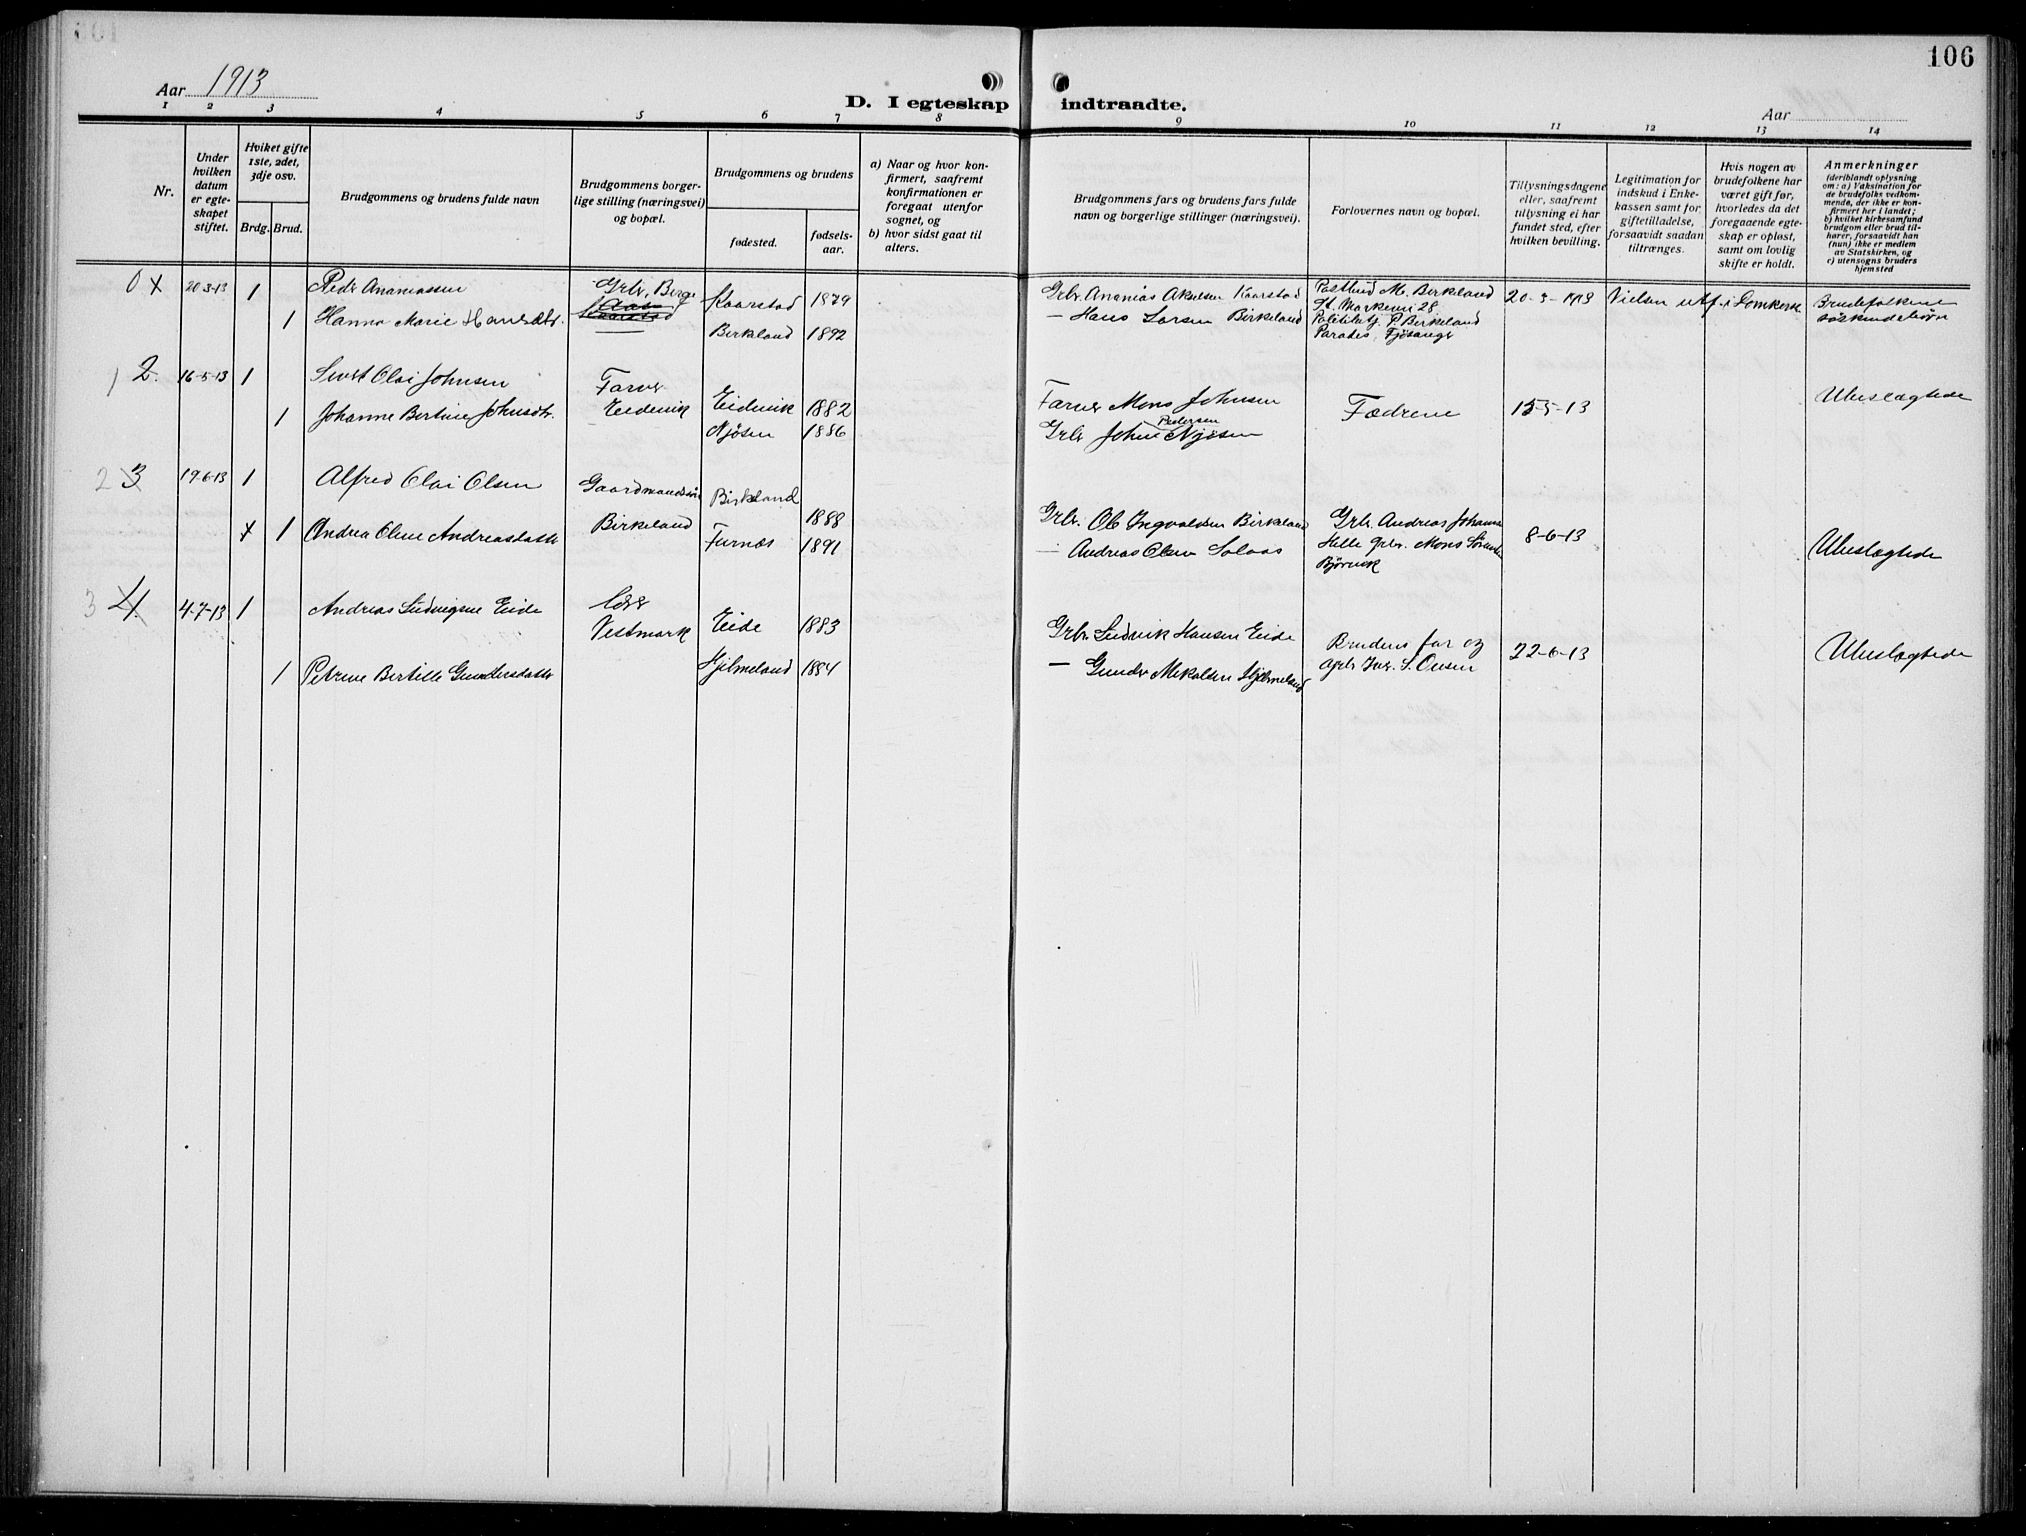 106
Aar 1913
D. I egteskap indtraadte.
Aar
1 2 3 4 5 6 7 8 9 10 11 12 13 14
Nr.
Under hvilken datum er egteskapet stiftet.
Hviket gifte 1ste, 2det, 3dje osv.
Brdg. Brud.
Brudgommens og brudens fulde navn
Brudgommens borgerlige stilling (næringsvei) og bopæl.
Brudgommens og brudens
fødested.
fødselsaar.
a) Naar og hvor konfirmert, saafremt konfirmationen er foregaat utenfor sognet, og
b) hvor sidst gaat til alters.
Brudgommens fars og brudens fars fulde navn og borgerlige stillinger (næringsvei).
Forlovernes navn og bopæl.
Tillysningsdagene eller, saafremt tillysning ei har fundet sted, efter hvilken bevilling.
Legitimation for indskud i Enkekassen samt for giftetilladelse, forsaavidt saadan tiltrænges.
Hvis nogen av brudefolkene har været gift før, hvorledes da det foregaaende egteskap er opløst, samt om lovlig skifte er holdt.
Anmerkninger
(deriblandt oplysning om: a) Vaksination for de brudefolks vedkommende, der ikke er konfirmert her i landet;
b) hvilket kirkesamfund brudgom eller brud tilhører, forsaavidt han (hun) ikke er medlem av Statskirken, og
c) utensogns bruders hjemsted
0 x 20-3-13 1 Peder Ananiassen Grbr. Berge Kaarstad 1879 Grbr. Ananias Akselsen Kaarstad
Kaarstad
1 Hanna Marie Hansdtr. Birkeland 1892 — Hans Larsen Birkeland
Postbud M. Birkeland
St. Markevei 28.
Politibtj. P. Birkeland
Paradis, Fjøsanger
20-3-1913 Nielsen utf. i Domkirk. Brudefolkene
søskendebørn
1 2. 16-5-13 1 Sivert Olai Johnsen Farver Eidsvik 1882 Farver Mons Johnsen
1 Johanne Bertine Johnsdtr. Eidsvik Njøsen 1886 Grbr John Pedersen Njøsen
Fædrene 15-5-13 Ubeslægtede
2 3 19-6-13 1 Alfred Olai Olsen Gaardmandssøn Birkeland 1888 Grbr. Ole Ingvaldsen Birkeland
x 1 Andrea Oline Andreasdatter Birkeland Furnæs 1891 — Andreas Olsen Solaas
Grbr. Andreas Johanne
Helle grbr. Mons
Bjørnvik
8-6-13 Ubeslægtede
3 4. 4-7-13 1 Andreas Ludvigsen Eide Vestmark Eide 1883 Grbr. Ludvik Hansen Eide
1 Petrine Bertille Gundersdatter Hjelmeland 1894 — Gunder Mikalsen Hjelmeland
Brudens far og
grbr S. Onsen
22-6-13 Ubeslægtede